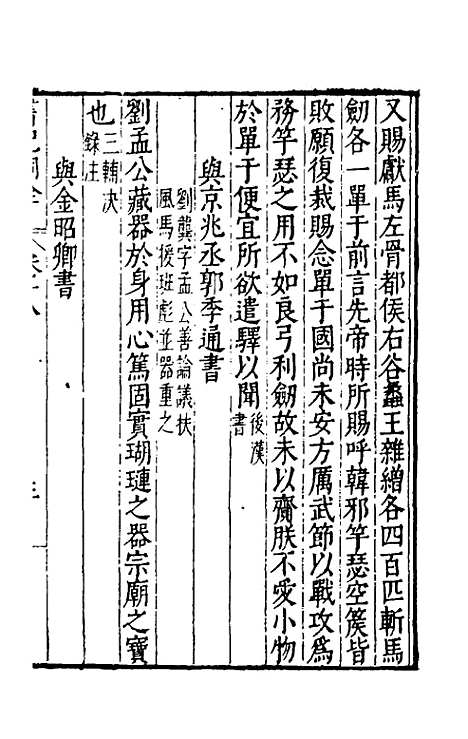 又賜獻馬左骨都侯右谷蠡王雜繒各四百匹斬馬
劒各一單于前言先帝時所賜呼韓邪竽瑟空篌皆
敗願復裁賜念單于國尚未安方厲武節以戰攻爲
務竽瑟之用不如良弓利劒故未以齎朕不愛小物
於單于便宜所欲遣驛以聞後漢
書
與京兆丞郭季通書
劉龔字孟公善論議扶
風馬援班彪並器重之
劉孟公藏器於身用心篤固實瑚璉之器宗廟之寶
也三輔決
錄注
與金昭卿書